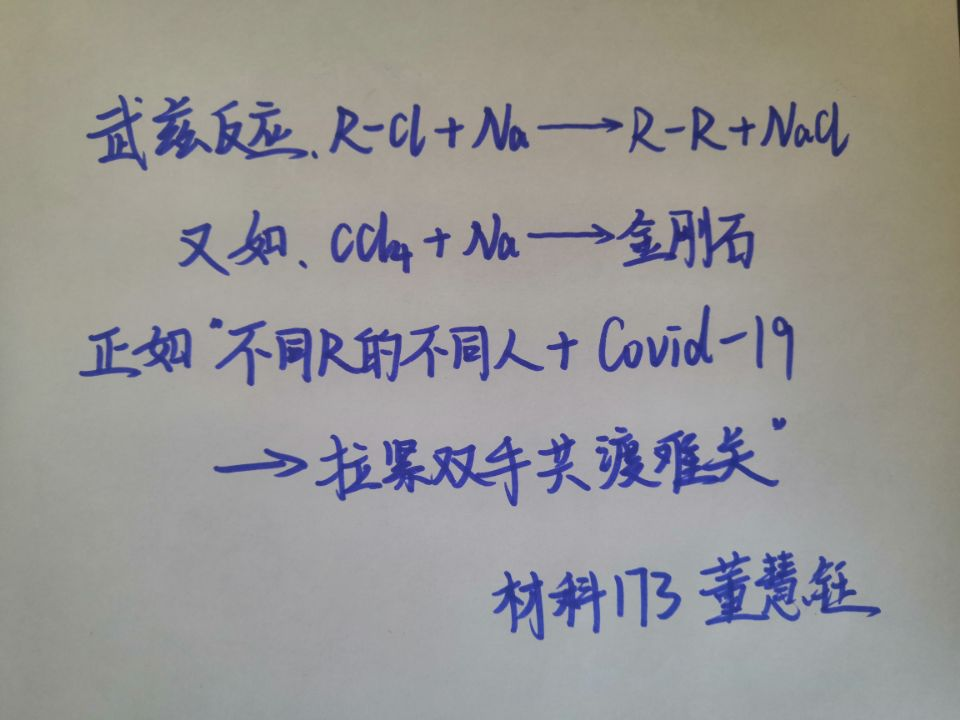 武兹反应、R-Cl+Na⟶R-R+NaCl
又如、CCl₄+Na⟶金刚石
正如"不同R的不同人+Covid-19
⟶拉紧双手共渡难关"
材科173 董慧钰